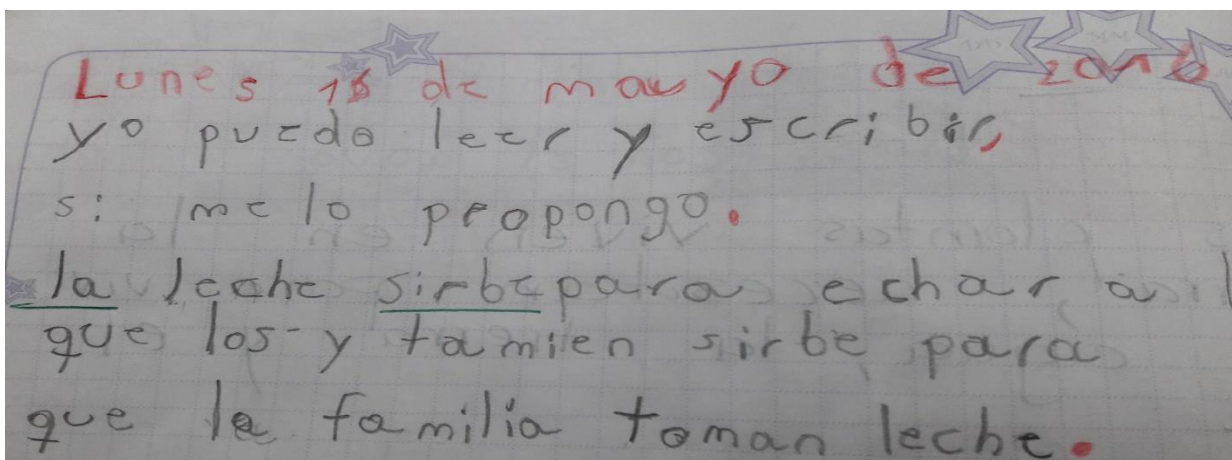 Lunes 16 de mayo de
yo puedo leer y escribir,
si me lo propongo.
la leche sirbe para echar a l
que los-y tamien sirbe para
que la familia toman leche.